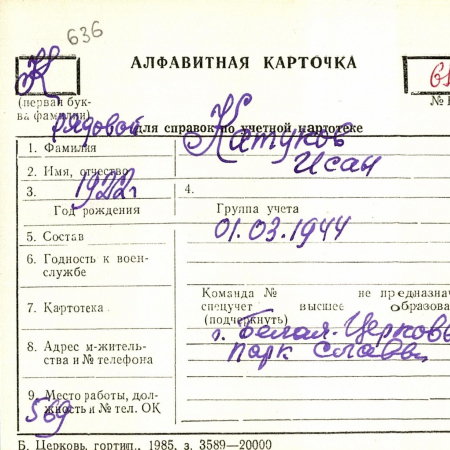 636
К
АЛФАВИТНАЯ КАРТОЧКА
(первая бук-
ва фамилии)
рядовой
для справок по учетной картотеке
1. Фамилия Катуков
2. Имя, отчество Исай
3. 1922г 4.
Год рождения Группа учета
5. Состав 01.03.1944
6. Годность к воен-
службе
Команда № не предназна
7. Картотека спецучет высшее образова
(подчеркнуть)
г. Белая-Церковь
8. Адрес м-житель- парк славы
ства и № телефона
9. Место работы, дол-
жность и № тел. ОК
569
Б. Церковь, гортип., 1985, з. 3589—20000